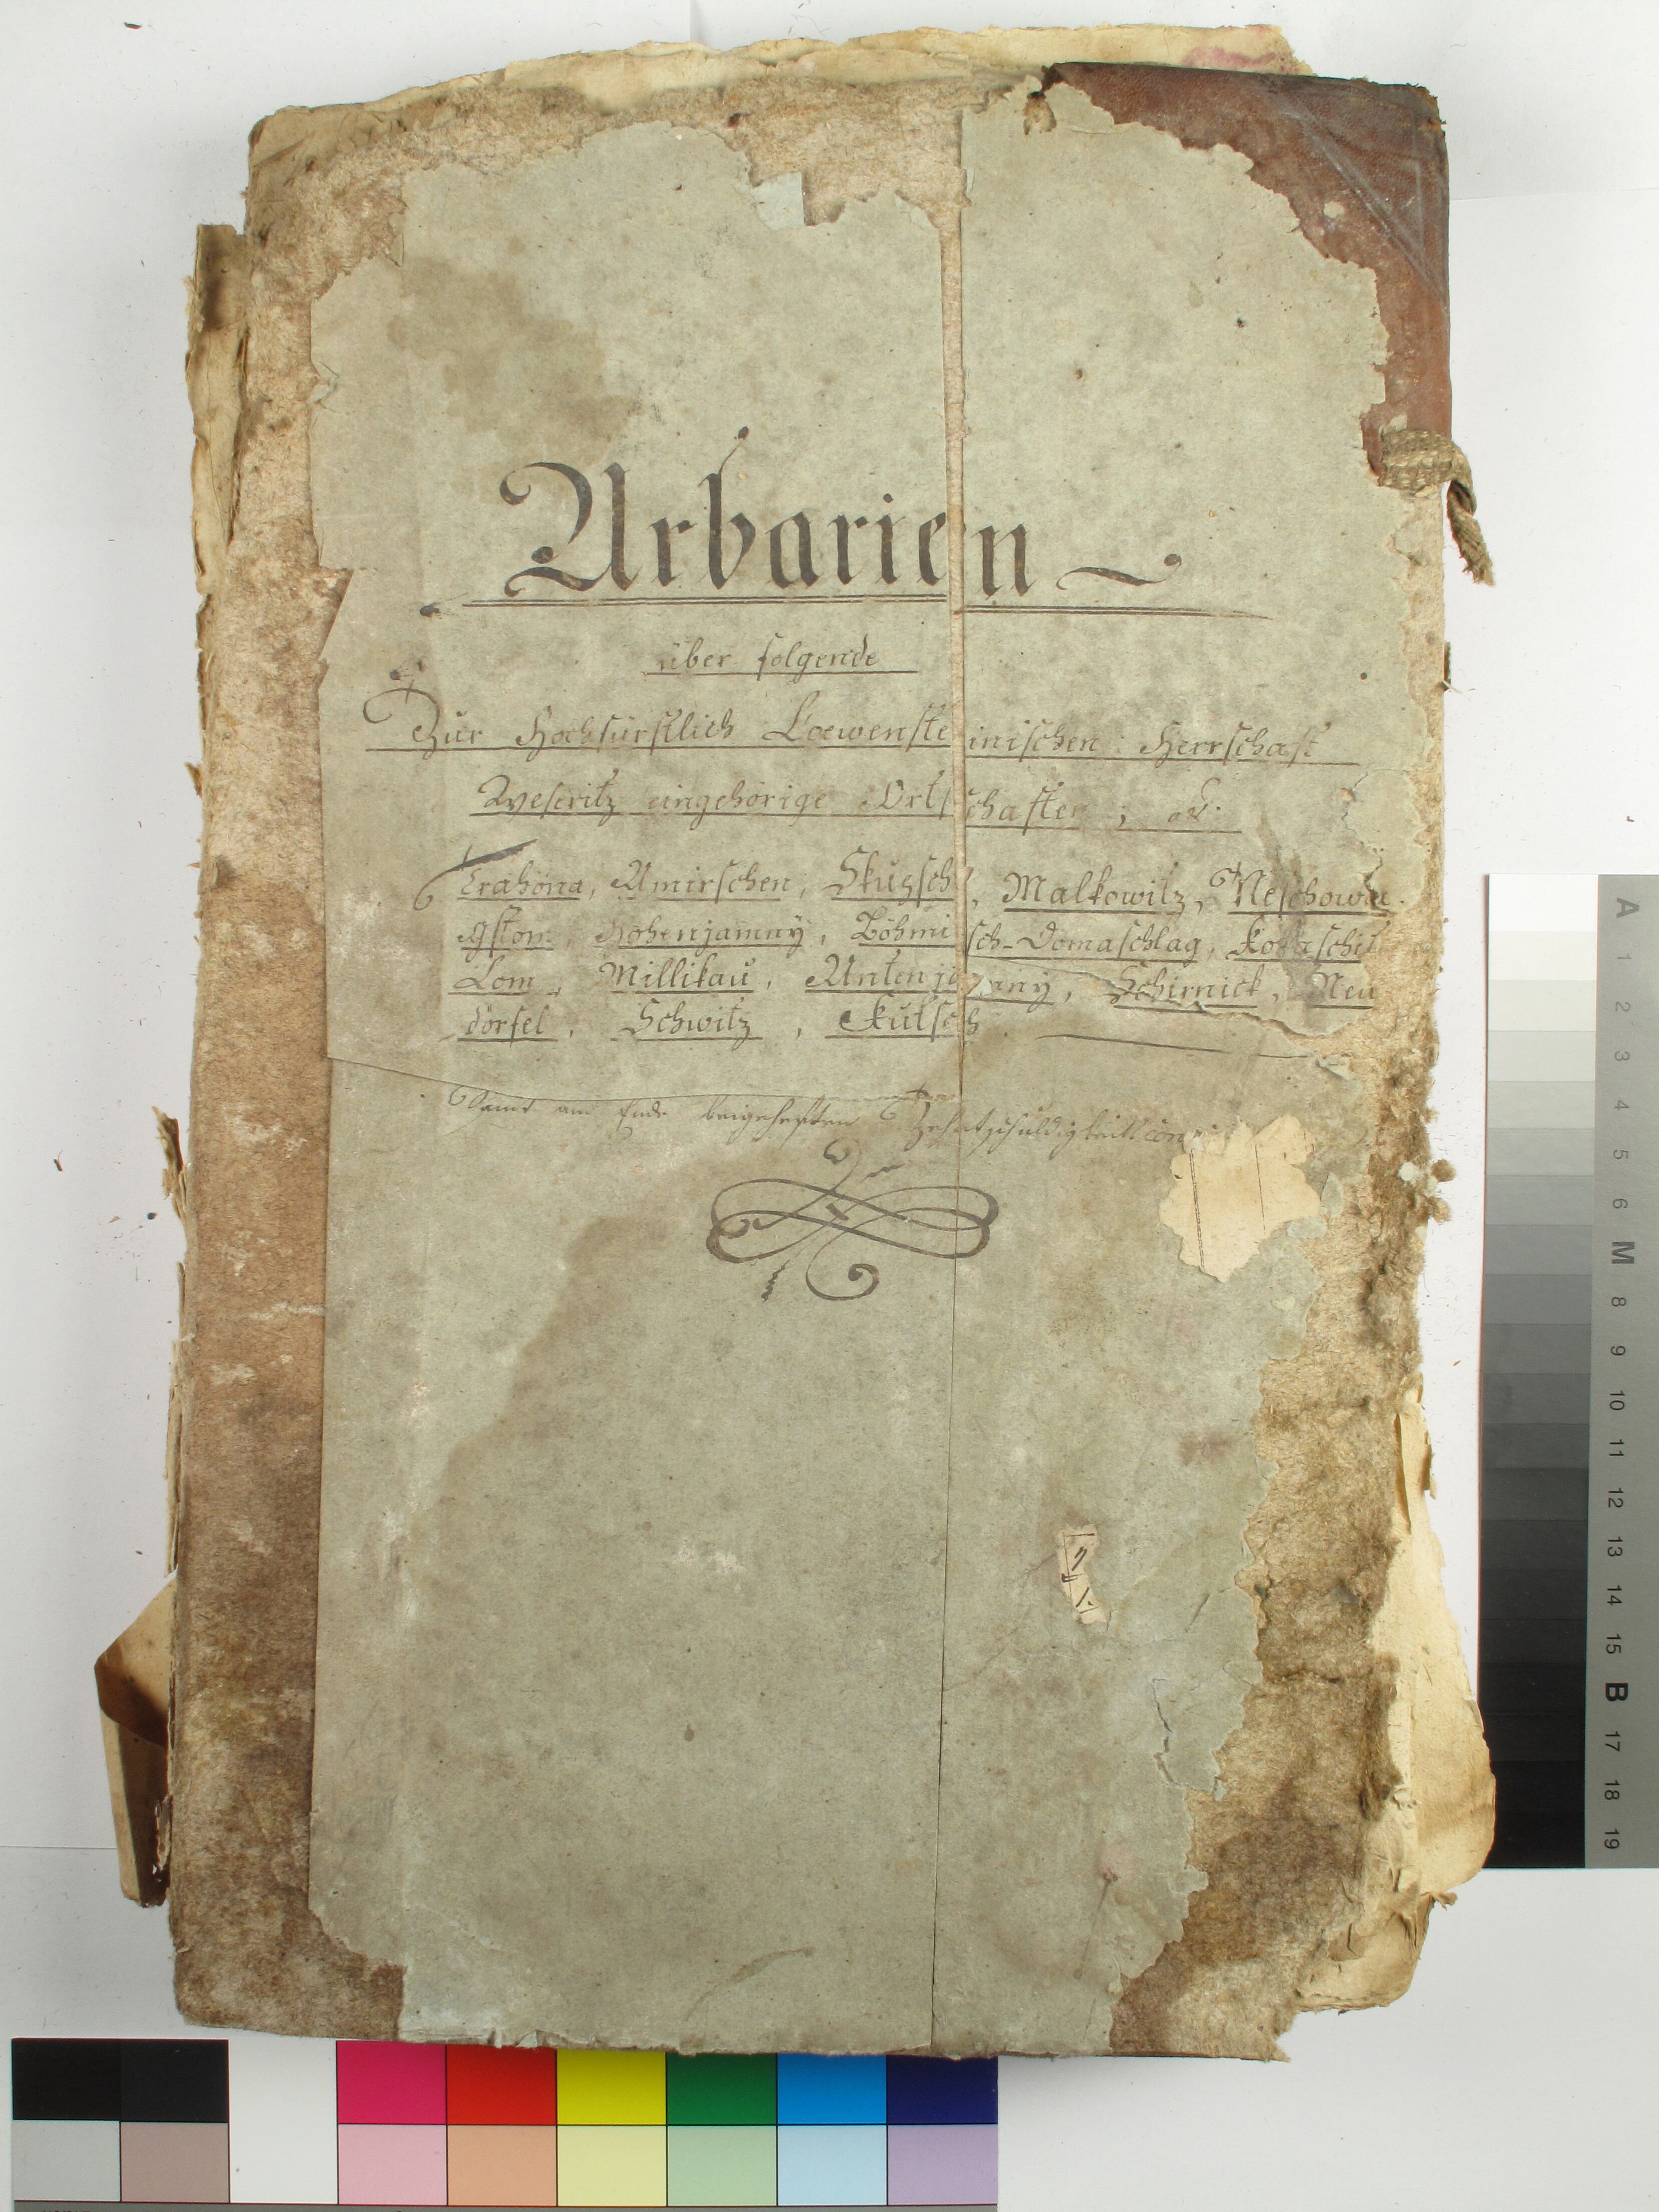 Urbarien
über folgende
Zur Hochfürstlich Loewensteinischen Herrschaft
Weseritz eingehörige Ortschaften, als:
Trahona, Umirschen, Skugsch, Malkowitz, Neschowa
Gstom, Hohenjamny, Böhmisch-Domaschlag, Kokaschitz
Lom, Millikau, Untenjamny, Schirnick, Neu
dörfel, Schwitz, Kutsch
Samt am Ende beigehefteten
A 1 2 3 4 5 6 M 8 9 10 11 12 13 14 15 B 17 18 19